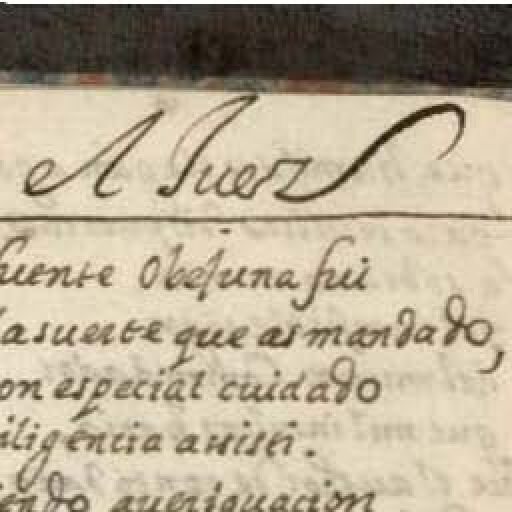 El Juez
fuente Obejuna fui
la suerte que as mandado,
on especial cuidado
iligencia assisti.
iendo aueriguacion